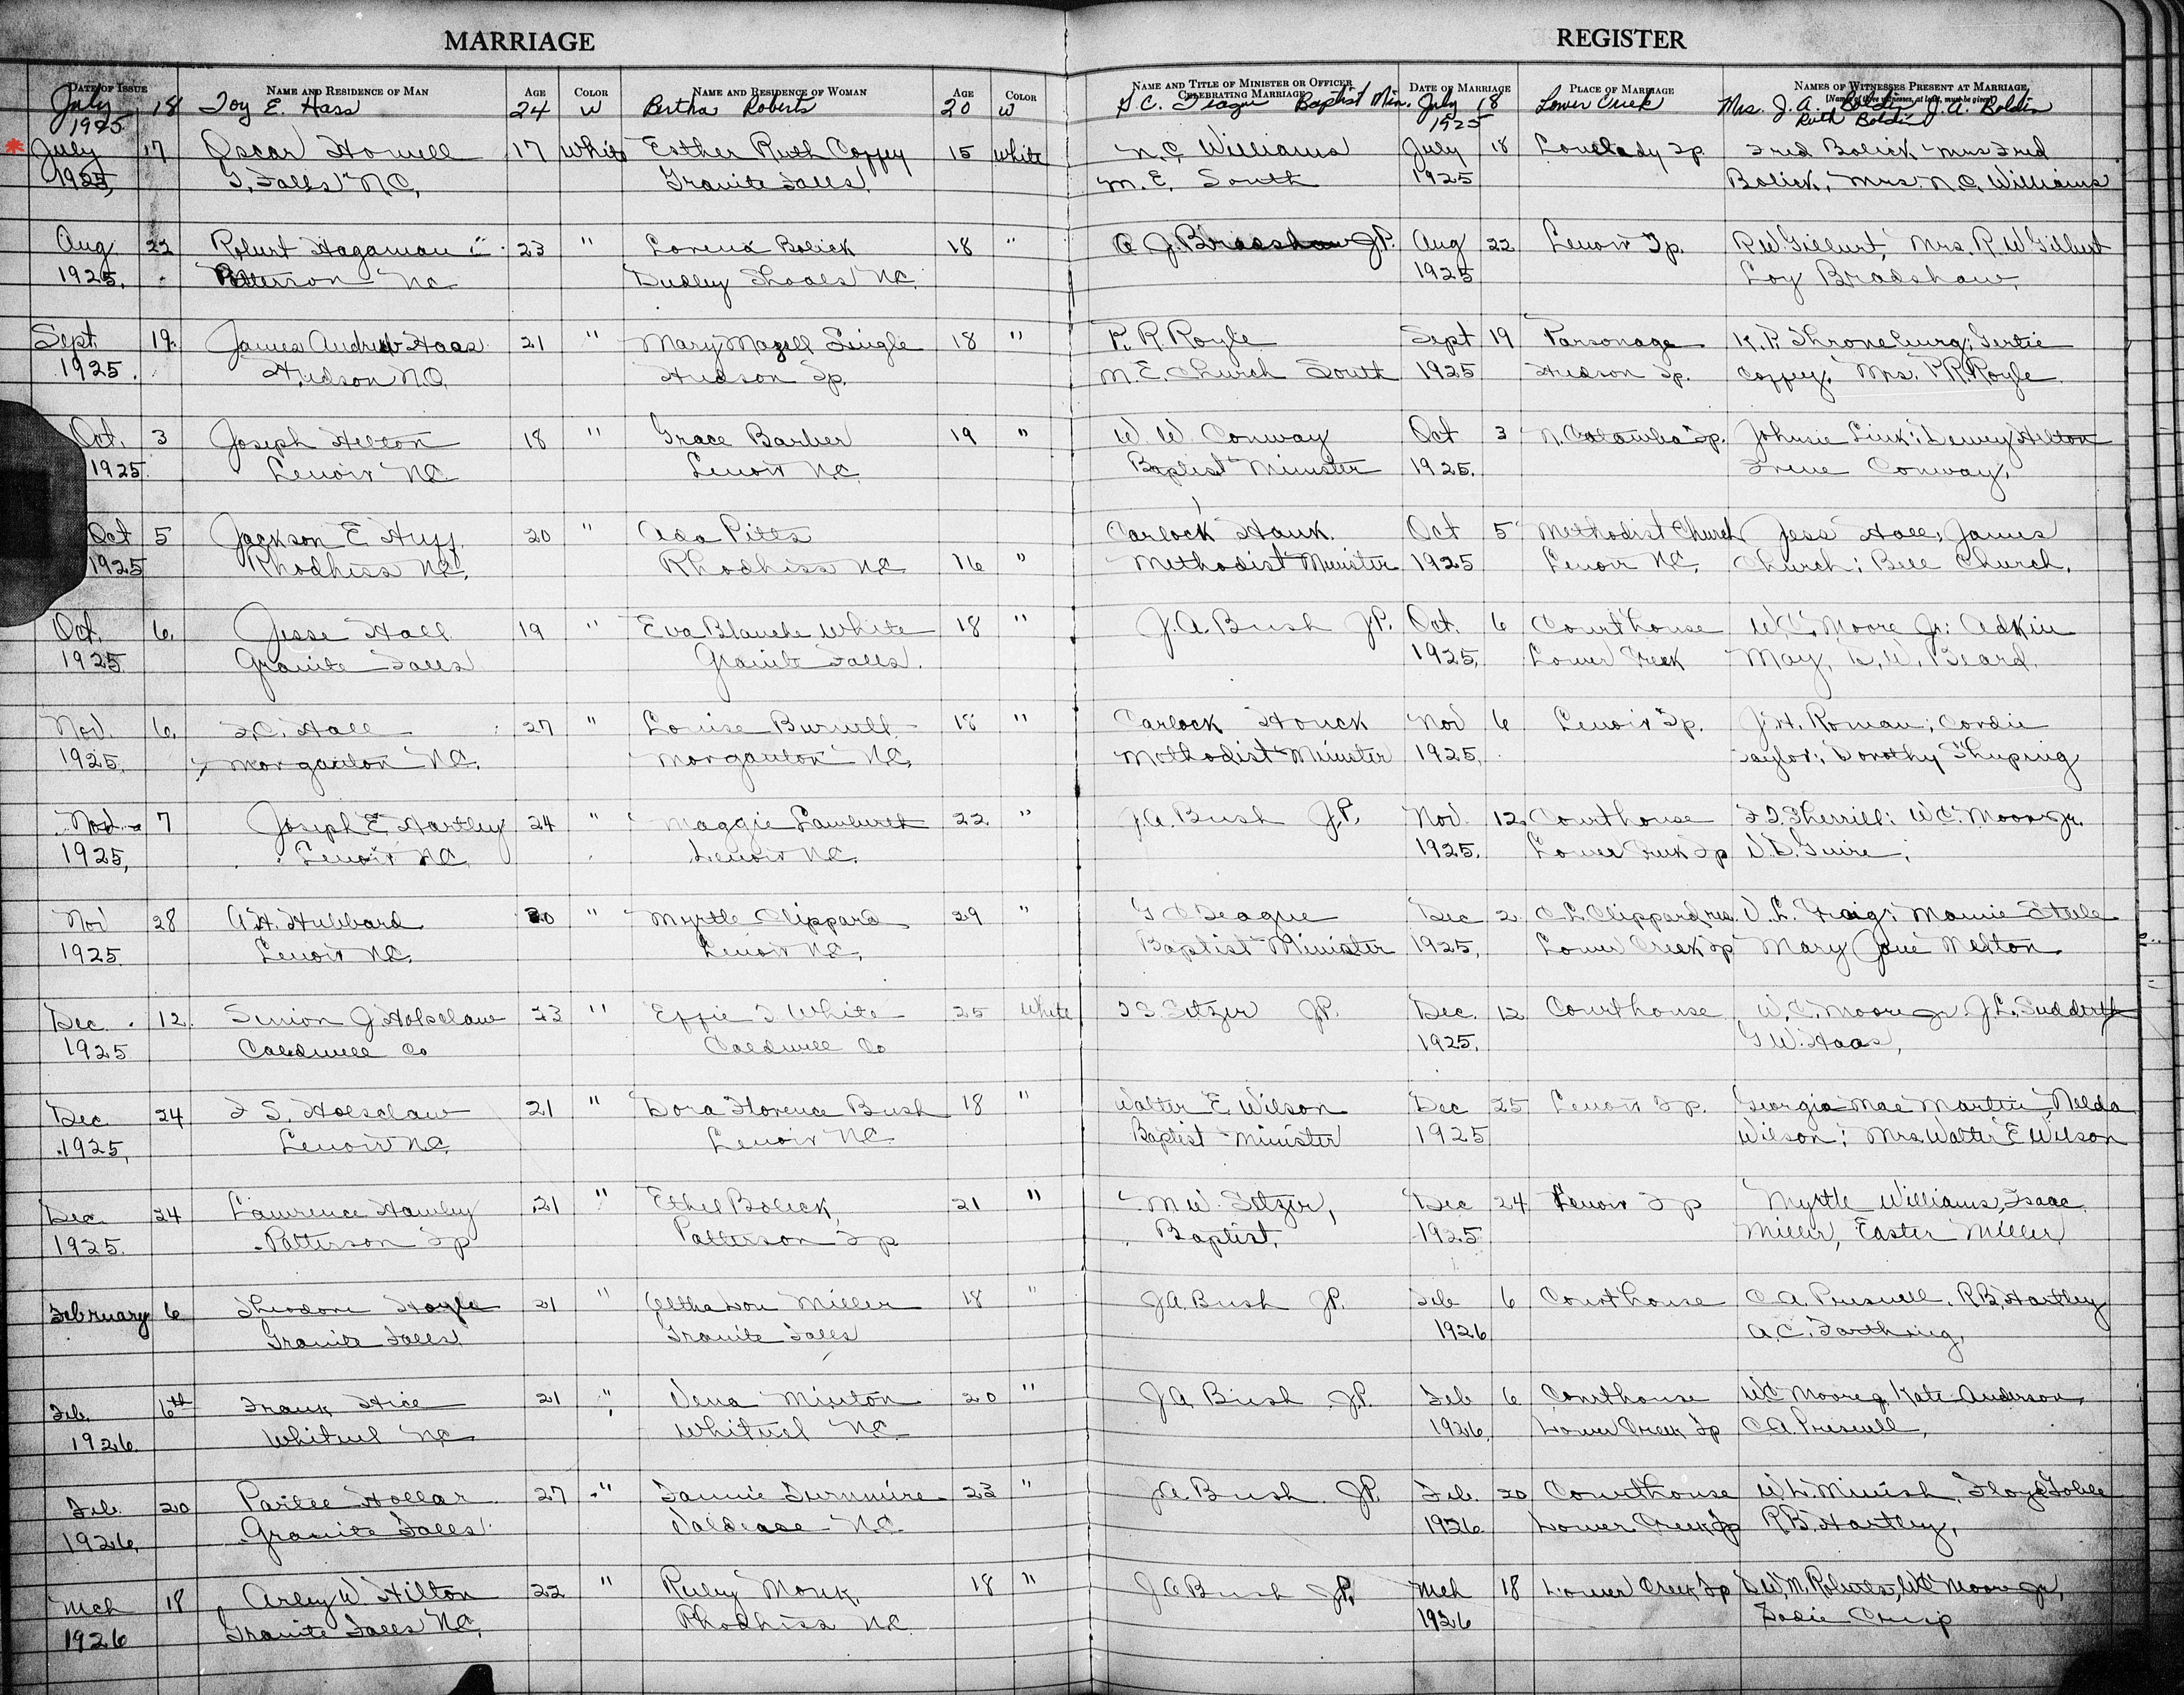 MARRIAGE REGISTER
DATE OF ISSUE NAME AND RESIDENCE OF MAN AGE COLOR NAME AND RESIDENCE OF WOMAN AGE COLOR NAME AND TITLE OF MINISTER OR OFFICER CELEBRATING MARRIAGE DATE OF MARRIAGE PLACE OF MARRIAGE NAMES OF WITNESSES PRESENT AT MARRIAGE,
July 18 Toy E. Hass 24 W Bertha Roberts 20 W G. C. Teague Baptist Min. July 18 Lower Creek Mrs. J. A. Boldin J. A. Boldin
1925 1925 Ruth Boldin
* July 17 Oscar Howell 17 White Esther Ruth Coffey 15 White N. C. Williams July 18 Lovelady Tp Fred Bolick Mrs Fred
1925, G. Falls N.C, Granite Falls, M. E. South 1925 Bolick, Mrs. N. C. Williams
Aug 22 Robert Hagaman 23 " Lorena Bolick 18 " A J. Bradshaw J.P. Aug 22 Lenoir Tp. R. W Gilbert, Mrs. R. W Gilbert
1925. Patterson NC Dudley Shoals NC. 1925 Loy Bradshaw,
Sept. 19. James Andrew Haas 21 " Mary Mozell Single 18 " P. R. Royle Sept 19 Parsonage K. P. Throneburg; Gertie
1925. Hudson N.C. Hudson Tp. M. E. Church South 1925 Hudson Tp. Coffey, Mrs. P R. Royle
Oct. 3 Joseph Hilton 18 " Grace Barber 19 " W. W. Conway Oct 3 N. Catawba Tp. Johnie Link; Dewey Hilton
1925. Lenoir NC Lenoir NC Baptist Minister 1925. Irene Conway,
Oct 5 Jackson E Huff 20 " Ada Pitts Carlock Hauk. Oct 5 Methodist Church Jess Hall, James
1925 Rhodhiss NC. Rhodhiss NC 16 " Methodist Minister 1925 Lenoir NC. Church; Bell Church.
Oct. 6. Jesse Hall 19 " Eva Blanche White 18 " J. A. Bush J.P. Oct. 6 Courthouse W. C. Moore Jr: Adkin
1925. Granite Falls Granite Falls. 1925. Lower Creek May, B. W. Beard.
Nov. 6, F. C. Hall 27 " Louise Burnett 18 " Carlock Houck Nov 6 Lenoir Tp. J. H. Roman; Cordie
1925. Morganton NC. Morganton NC. Methodist Minister 1925. Taylor; Dorothy Shuping
Nov. 7 Joseph E. Hartley 24 " Maggie Lambirth 22. " J. A. Bush J.P. Nov. 12. Courthouse W. C. Moore Jr.
1925, Lenoir NC. Lenoir NC. 1925. Lower Creek Tp
Nov 28 A. H. Hubbard 30 " Myrtle Clippard 29 " G C Teague Dec 2 C. L. Clippard res. Mamie Steele
1925. Lenoir NC. Lenoir NC. Baptist Minister 1925. Lower Creek Tp Mary Jane Melton.
Dec. 12. Simion J Holsclaw 23 " Effie White 25 White Setzer JP. Dec. 12 Courthouse W. C. Moore Jr J. L. Sudderth
1925 Caldwell Co Caldwell Co 1925. G W. Haas,
Dec 24 Holsclaw 21 " Dora Florence Bush 18 " Walter E Wilson Dec 25 Lenoir Tp. Georgia Mae Martin, Nelda
1925, Lenoir NC. Lenoir NC Baptist Minister 1925 Wilson; Mrs. Walter E Wilson
Dec. 24 Lawrence Hamby 21 " Ethel Bolick 21 " M W. Setzer, Dec 24 Lenoir Tp Myrtle Williams, Isaac
1925. Patterson Tp Patterson Tp Baptist. 1925 Miller, Easter Miller
February 6 Theodore Hoyle 21 " Miller 18 " J A. Bush JP. Feb 6 Courthouse C. A. Presnell, R B. Hartley
Granite Falls Granite Falls 1926 A. C. Farthing,
Feb. 6th Frank Hice 21 " Vena Minton 20 " J A Bush JP. Feb 6 Courthouse Kate Anderson,
1926 Whitnel NC Whitnel NC 1926. Lower Creek Tp C. A. Presnell,
Feb. 20 Parlee Hollar 27 " Fannie Turnmire 23 " J. A. Bush JP. Feb. 20 Courthouse W. L. Minish, Floyd
1926, Granite Falls. Valdease NC 1926 Lower Creek Tp R B. Hartley,
Mch 18 Arley W Hilton 22 " Ruby Monk, 18 " J A Bush JP. Mch 18 Lower Creek Tp Roberts, W C Moore Jr,
1926 Granite Falls NC. Rhodhiss NC. 1926 Crisp